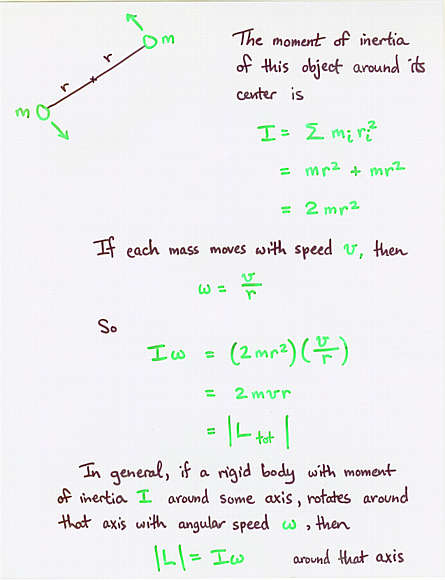 m
r
r
m
The moment of inertia
of this object around its
center is
I = Σ mᵢ rᵢ²
= mr² + mr²
= 2mr²
If each mass moves with speed v, then
ω = v/r
So
Iω = (2mr²)(v/r)
= 2mvr
= |L tot|
In general, if a rigid body with moment
of inertia I around some axis, rotates around
that axis with angular speed ω, then
|L| = Iω around that axis